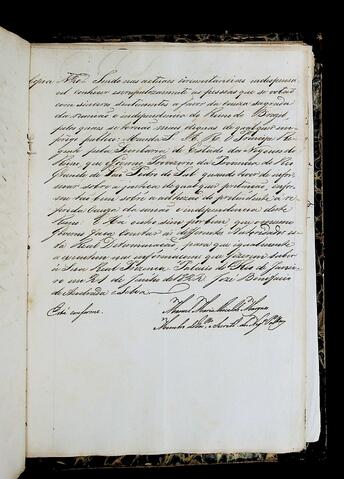 Copia Nº 2. Sendo nas actuaes circumstancias indispensa
vel conhecer escrupulozamente as pessoas que se votão
com sinceros sentimentos a favor da cauza sagrada
da união e independencia do Reino do Brazil
pelos quaes se tornão mais dignas de qualquer em
prego publico: Manda S. A. R. o Principe Re
gente pela Secretaria de Estado dos Negocios do
Reino que o Governo Provizorio da Provincia do Rio
Grande de São Pedro do Sul quando houver de infor
mar sobre a justiça de qualquer pretenção, infor
me tambem sobre a adhezão do pretendente á re
ferida Cauza da união e independencia deste
Reino. E Ha outro sim por bem que o mesmo
Governo faça constar ás differentes Authoridades es
ta Real Determinação, para que igualmente
a executem nas informaçoens que fizerem subir
á Sua Real Prezença. Palacio do Rio de Janei
ro em 21 de Junho de 1822. Jozé Bonifacio
de Andrada e Silva.
Está conforme.
Manoel Maria
Membro